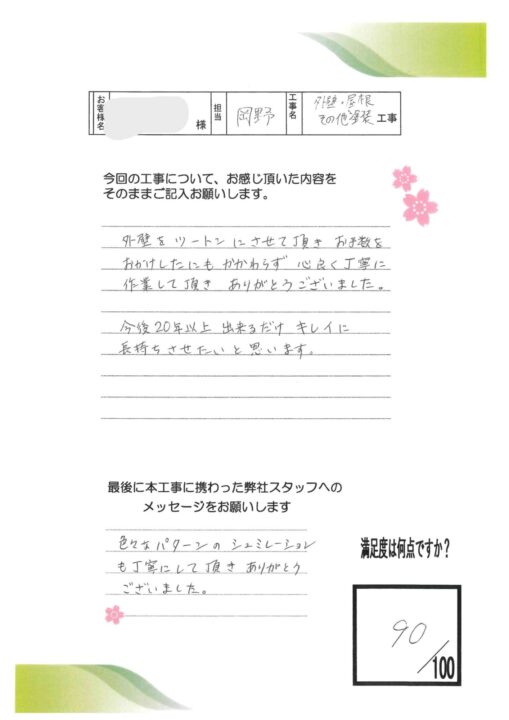 お客様名 様 担当 岡野 工事名 外壁・屋根
その他塗装 工事
今回の工事について、お感じ頂いた内容を
そのままご記入お願いします。
外壁をツートンにさせて頂き お手数を
おかけしたにもかかわらず 心良く丁寧に
作業して頂き ありがとうございました。
今後20年以上 出来るだけ キレイに
長持ちさせたいと思います。
最後に本工事に携わった弊社スタッフへの
メッセージをお願いします
色々なパターンの シュミレーション
も丁寧にして頂き ありがとう
ございました。
満足度は何点ですか？
90/100